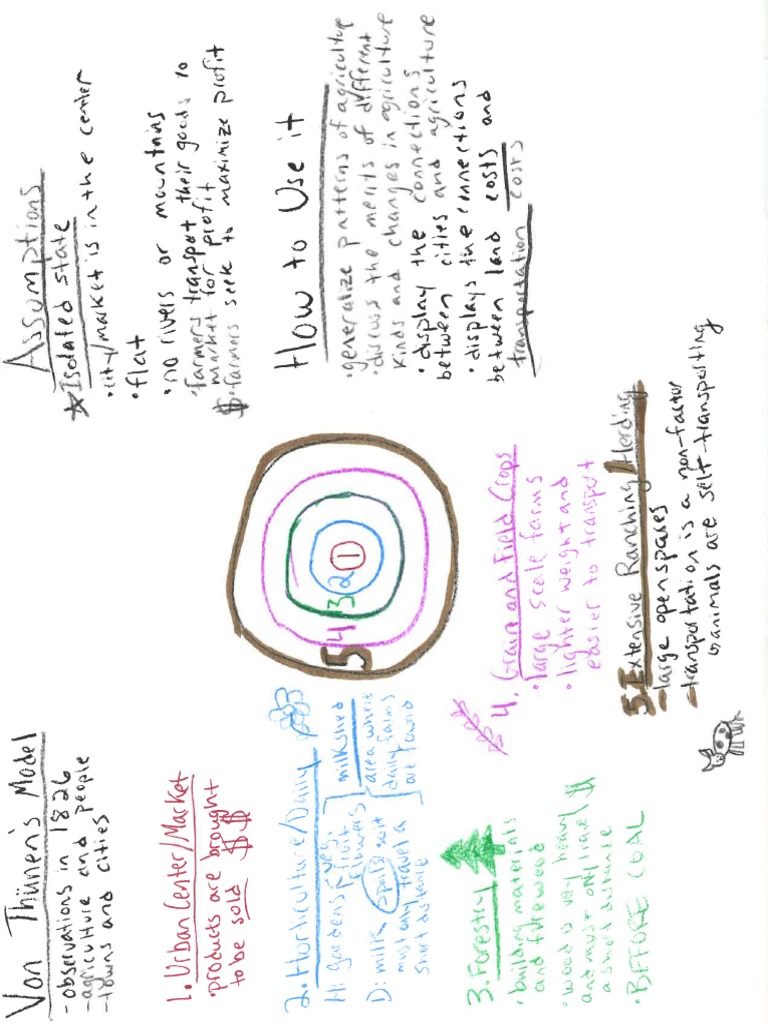 Von Thünen's Model
- observations in 1826
- agriculture and people
- towns and cities
1. Urban Center/Market
• products are brought
to be sold $ $
2. Horticulture/Daily
H: gardens, veg,
fruit
flowers
D: milk spoils so it
must only travel a
short distance
milkshed
area where
daily farms
are found
3. Forestry
• building materials
and firewood
• wood is very heavy
and must only travel $
a short distance
• BEFORE COAL
1
2
3
4
5
4. Grain and Field Crops
• large scale farms
• lighter weight and
easier to transport
5. Extensive Ranching/Herding
- large open spaces
- transportation is a non-factor
↳ animals are self-transporting
Assumptions
☆ Isolated state
• city/market is in the center
• flat
• no rivers or mountains
• farmers transport their goods to
market for profit
$• farmers seek to maximize profit
How to Use it
• generalize patterns of agriculture
• discuss the merits of different
kinds and changes in agriculture
• display the connections
between cities and agriculture
• displays the connections
between land costs and
transportation costs